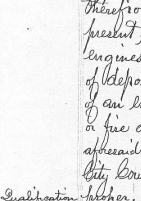 therefro
present
engines
of depos
of an e
or fire a
aforesaid
City Cou
Qualification proper